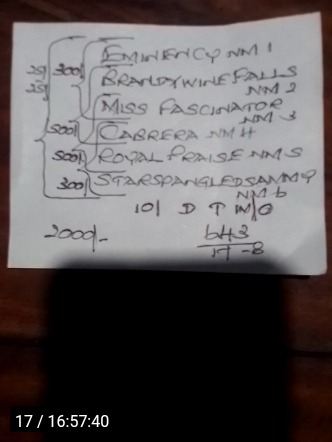 EMINENCY NM 1
300/ BRANDYWINEFALLS
NM 2
MISS FASCINATOR
NM 3
500/ CABRERA NM 4
500/ ROYAL PRAISE NM 5
300/ STARSPANGLEDSAMMY
NM 6
10/ D T
2000/-
643
17 - 8
17 / 16:57:40